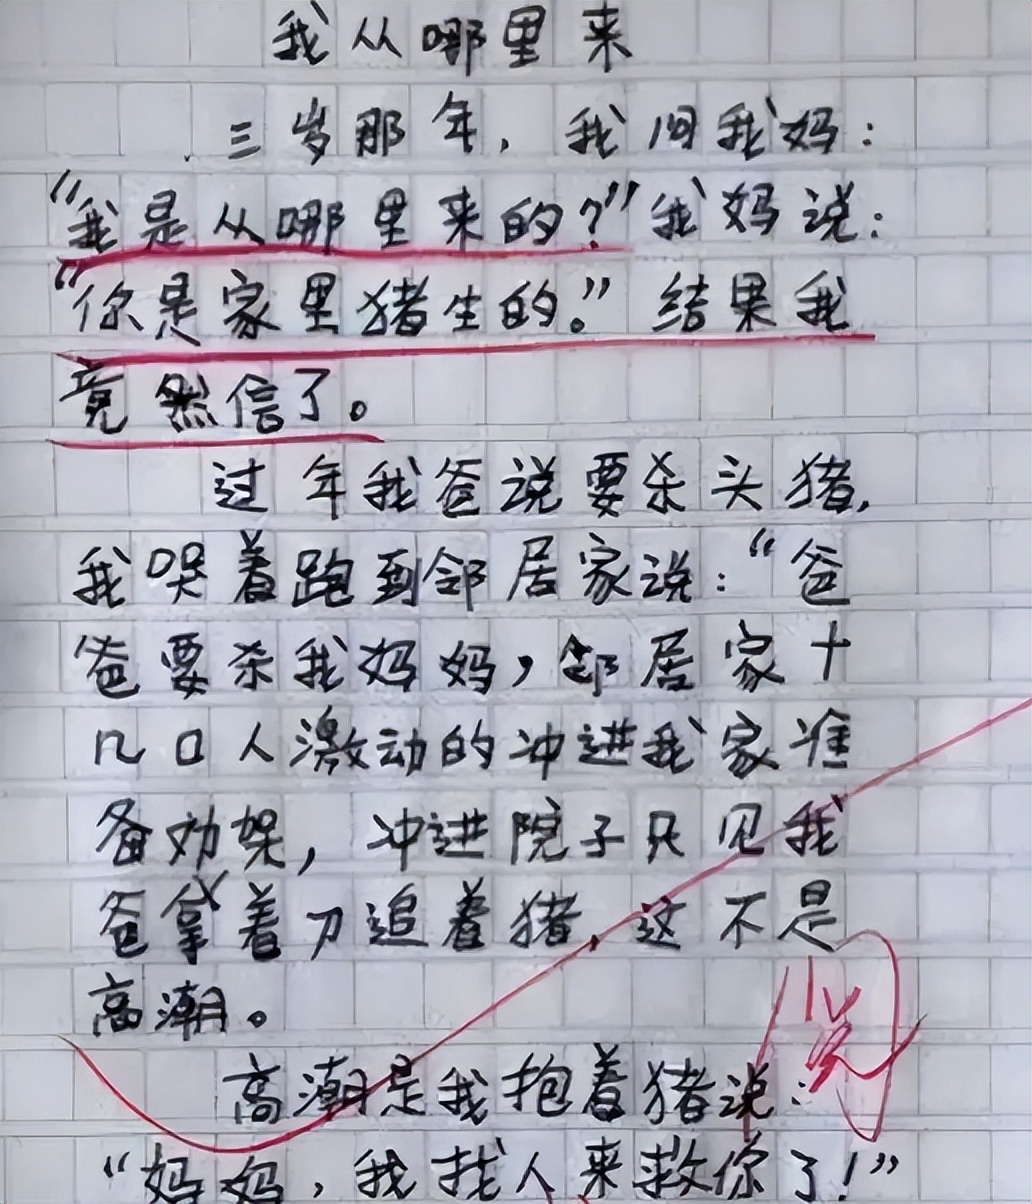 我从哪里来
三岁那年，我问我妈：
“我是从哪里来的？”我妈说：
“你是家里猪生的。”结果我
竟然信了。
过年我爸说要杀头猪，
我哭着跑到邻居家说：“爸
爸要杀我妈妈，邻居家十
几口人激动的冲进我家准
备劝架，冲进院子只见我
爸拿着刀追着猪，这不是
高潮。
阅
高潮是我抱着猪说：
“妈妈，我找人来救你了！”